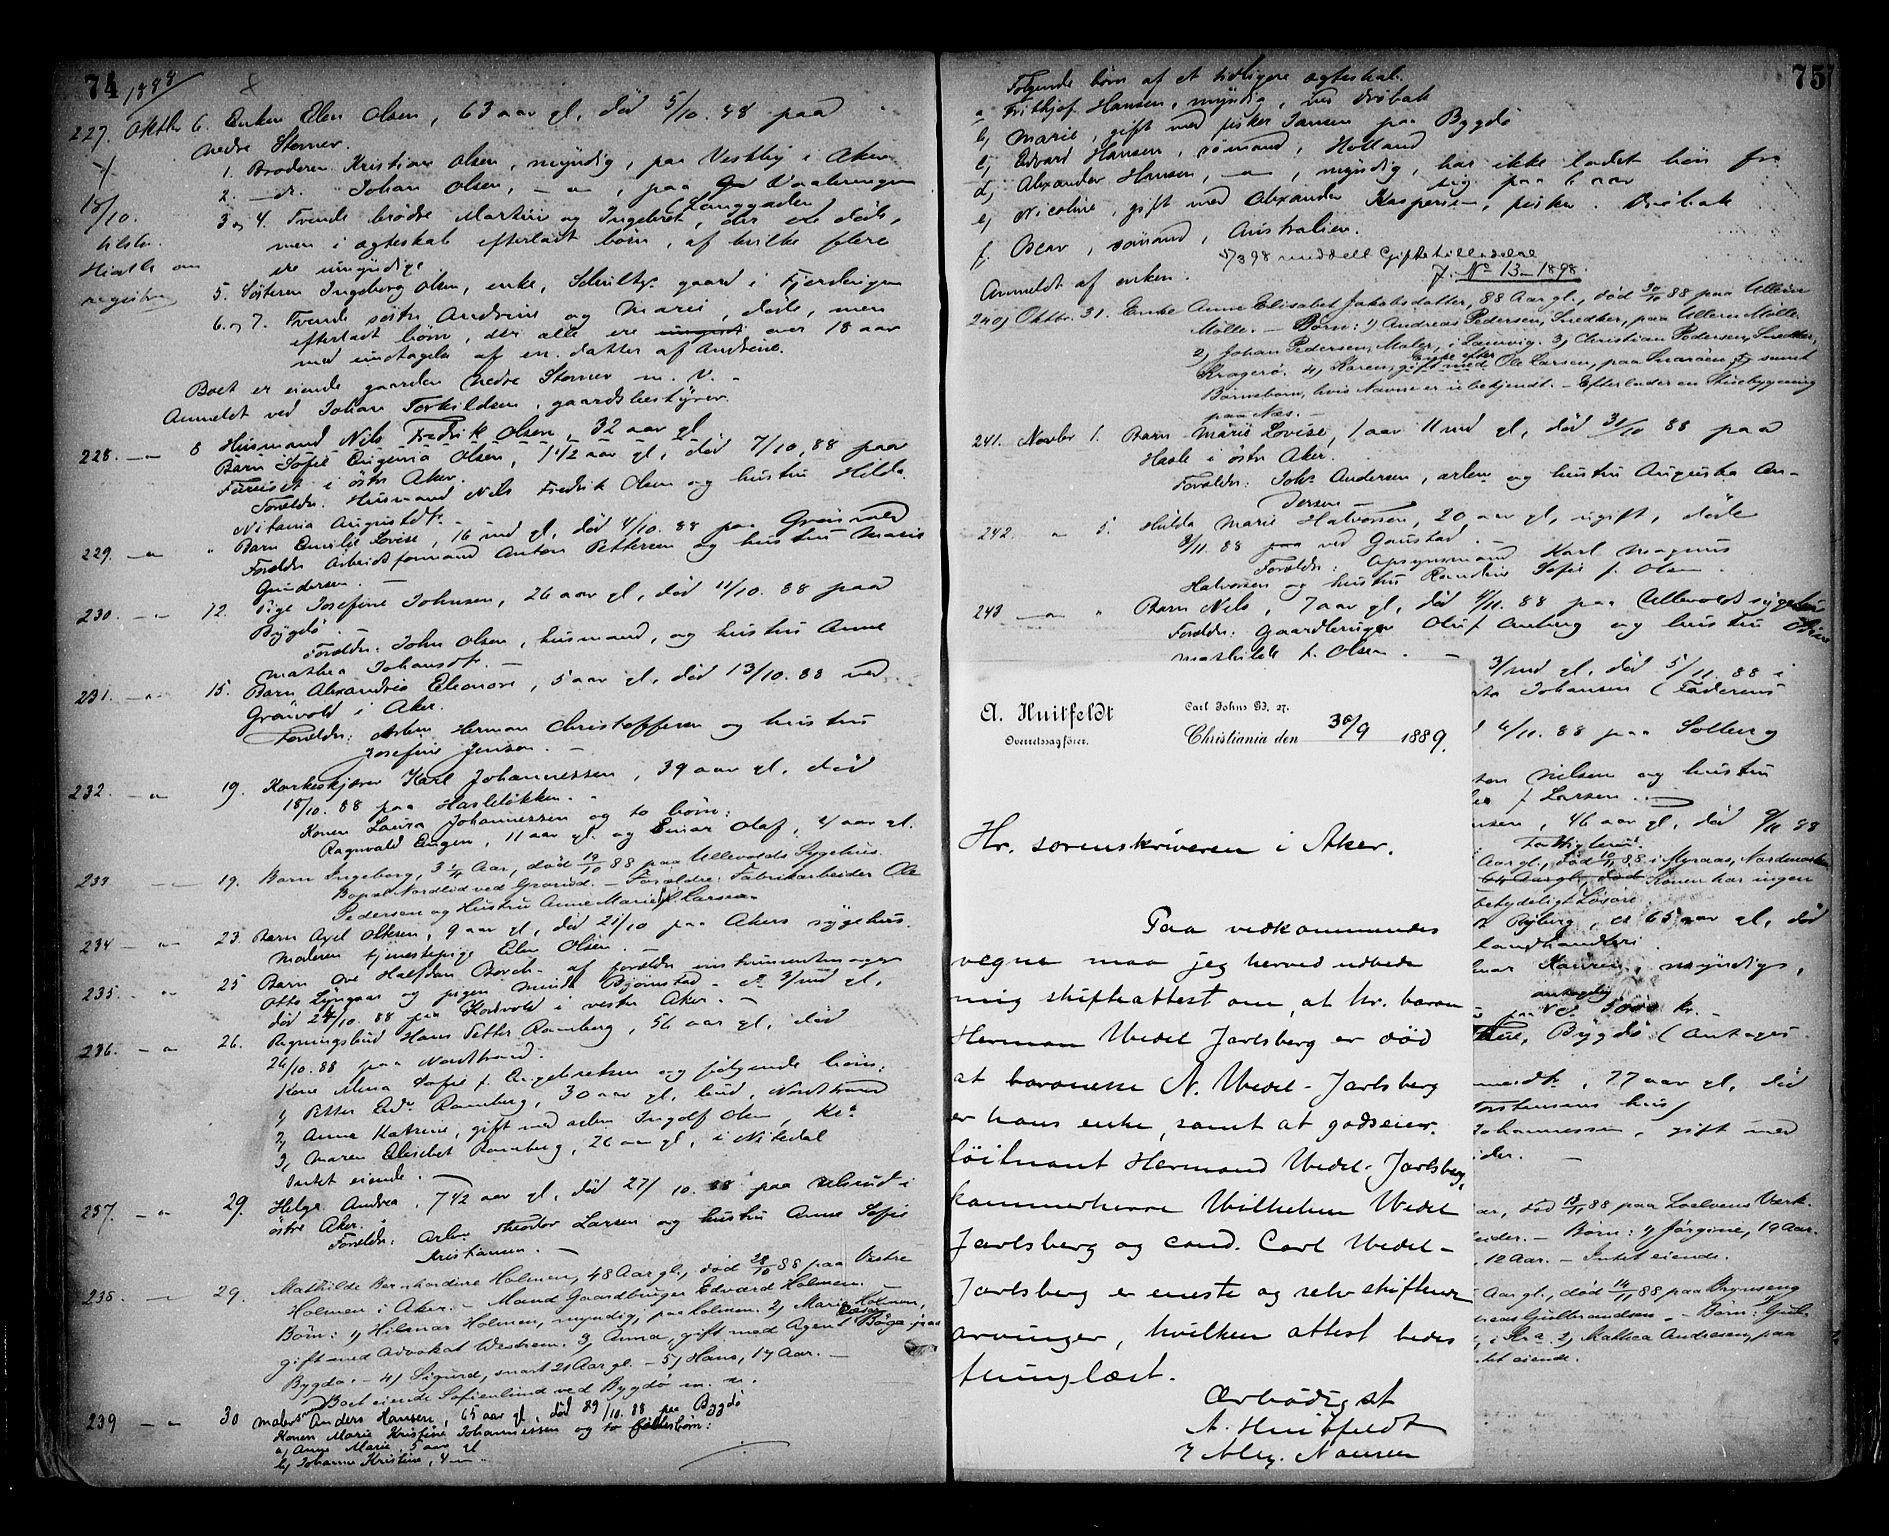 74
1888
227. Oktbr 6. Enken Elen Olsen, 63 aar gl, død 5/10. 88 paa
nedre Stovner.
1. Broderen Kristian Olsen, myndig, paa Vestby i Aker
2. - d. - Johan Olsen, - " -, paa Vaalerengen
(Langgaden)
3 og 4. Tvende brødre Martin og Ingebret, der ere døde,
men i ægteskab efterladt børn, af hvilke flere
ere umyndige
15/10.
5. Søsteren Ingeborg Olsen, enke, gaard i Fjerdingen
6 og 7. Tvende søstre Andrine og Marie, døde, men
efterladt børn, der alle ere over 18 aar
med undtagelse af en datter af Andrine.
Boet er eiende gaarden nedre Stovner m. v. -
Anmeldt ved Johan Torkildsen, gaardsbestyrer.
228. - " - 8 Husmand Nils Fredrik Olsen, 32 aar gl
Barn Sofie Eugenia Olsen, 1 1/2 aar gl, død 7/10. 88 paa
Furuset i østre Aker.
Forældre: Husmand Nils Fredrik Olsen og hustru Hilda
Nitania Augustdtr. -
229. - " - " Barn Emilie Lovise, 16 md gl, død 4/10. 88 paa Grønvold
Forældre Arbeidsformand Anton Pettersen og hustru Marie
Gundersen. -
230. - " - 12. Pige Josefine Johnsen, 26 aar gl, død 11/10. 88 paa
Bygdø. -
Forældre: John Olsen, husmand, og hustru Anne
Mathea Johansdtr. -
231. - " - 15. Barn Alexandra Eleonore, 5 aar gl, død 13/10. 88 ved
Grønvold i Aker.
Forældre: Arbm Herman Christoffersen og hustru
Josefine Jensen. -
232. - " - 19. Korkeskjærer Karl Johannessen, 39 aar gl. død
18/10. 88 paa Hasleløkken. -
Konen Laura Johannessen og to børn:
Ragnvald Eugen, 11 aar gl og Einar Olaf, 4 aar gl.
233 - " - 19. Barn Ingeborg, 3 1/4 Aar, død 19/10 88 paa Ullevolds Sygehus.
Bopæl Nordlid ved Grorud. - Forældre: Fabrikarbeider Ole
Pedersen og Hustru Anne Marie f. Larsen
234 - " - 23. Barn Axel Olsen, 9 aar gl, død 21/10 paa Akers sygehus.
Moderen tjenestepige Elen Olsen. -
235. - " - 25 Barn Ove Halfdan Borch af forældre instrumentmager
Otto Lyngaas og pigen Minda Bjørnstad - 3 md gl,
død 24/10. 88 paa Kordvold i vestre Aker. -
236. - " - 26. Regningsbud Hans Petter Ramberg, 56 aar gl, død
26/10. 88 paa Nordstrand.
Kone Mina Sofie f. Engebretsen og følgende børn:
1, Petter Edv. Ramberg, 30 aar gl, bud, Nordstrand
2, Anne Katrine, gift med arbm Ingolf Olsen, Kr.a
3, Maren Elisabet Ramberg, 26 aar gl, i Nitedal
Intet eiende. -
237. - " - 29. Helga Andrea, 7 1/2 aar gl, død 27/10. 88 paa Ulsrud i
østre Aker.
Forældre: Arbm Theodor Larsen og hustru Anne Sofie
Kristiansen. -
238. - " - 29. Mathilde Bernhardine Holmen, 48 Aar gl., død 28/10 88 paa Vestre
Holmen i Aker. - Mand Gaardbruger Edvard Holmen. -
Børn: 1, Hilmar Holmen, myndig, paa Holmen. 2, Marie Holmen,
gift med Advokat Westrem. 3, Anna, gift med Agent Bøge paa
Bygdø. - 4, Sigurd, snart 21 Aar gl. - 5, Hans, 17 Aar. -
Boet eiende Sofienlund ved Bygdø m. v.
239 - " - 30 Anders Hansen, 65 aar gl, død 29/10. 88 paa Bygdø
Konen Marie Kristine Johannessen og to fællesbørn:
a, Anne Marie, 5 aar gl
b, Johanne Kristine, 4 - " -
75
Følgende børn af et tidligere ægteskab.
a Fritkjof Hansen, myndig, ved Drøbak
b, Marie, gift med fisker Jansen paa Bygdø
c, Edvard Hansen, sømand, Holland
d, Alexander Hansen, - " -, myndig, har ikke ladet høre fra
sig paa 6 aar
e, Nicoline, gift med Alexander Kaspersen, fisker. Drøbak
f, Oscar, sømand, Australien.
5/3 98 meddelt Giftetilladelse
J. No 13 - 1898.
Anmeldt af enken.
240, Oktbr. 31. Enke Anne Elisabet Jakobsdatter, 88 Aar gl., død 30/10 88 paa Ullern
Mølle. - Børn: 1, Andreas Pedersen, Snedker, paa Ullern Mølle.
2, Johan Pedersen, Maler, i Laurvig. 3, Christian Pedersen, Snedker,
Kragerø. 4, Karen, gift med Ole Larsen, paa Snarøen samt
enke efter
Børnebørn, hvis Navne er ubekjendt. - Efterlader en Husebygning
paa Næs. -
241. Novbr 1. Barn Marie Lovise, 1 aar 11 md gl, død 31/10 88 paa
Hasle i østre Aker.
Forældre: Johs Andersen, arbm og hustru Augusta An-
dersen -
242. - " - 5. Hilda Marie Halvorsen, 20 aar gl, ugift, døde
3/11. 88 ved Gaustad. -
Forældre: Opsynsmand Karl Magnus
Halvorsen og hustru Randine Sofie f. Olsen.
243 - " - " Barn Nils, 7 aar gl, død 4/11. 88 paa Ullevolds sygehus
Forældre: Gaardbruger Oluf Amberg og hustru
Mathilde f. Olsen. -
3/ md gl, død 5/11. 88 i
Johansen (Faderens
6/11. 88 paa Solberg
Nilsen og hustru
f. Larsen. -
46 aar gl, død 9/11 88
Fattiglem.
Aar gl., død 10/11 88 i Myraas, Nordmarken
Konen har ingen
betydeligt Løsøre
Ryberg, 65 aar gl, død
landhandleri.
Hansen, myndig,
antagelig
ved 5000 kr. -
Bygdø (Antages
77 aar gl, død
Torstensens hus/
Johannessen, gift med
død 13/11 88 paa Loelvens Værk.
Børn: 1, Jørgine, 19 Aar.
12 Aar. - Intet eiende.
Aar gl., død 14/11 88 paa Brynseng
Gulbrandsen. - Børn: 1,
i Kr.a 2, Mathea Andresen, paa
Intet eiende.
A. Huitfeldt
Overretssagfører.
Carl Johns G3. 27.
Christiania den 30/9 1889.
Hr. sorenskriveren i Aker.
Paa vedkommendes
vegne maa jeg herved udbede
mig skifteattest om, at hr. baron
Herman Wedel Jarlsberg er død
at baronesse N. Wedel-Jarlsberg
er hans enke, samt at godseier,
løitnant Hermand Wedel-Jarlsberg,
kammerherre Wilhelm Wedel
Jarlsberg og cand. Carl Wedel-
Jarlsberg er eneste og selvskiftende
arvinger, hvilken attest bedes
thinglæst.
Ærbødigst
A. Huitfeldt
/ Alex. Nansen